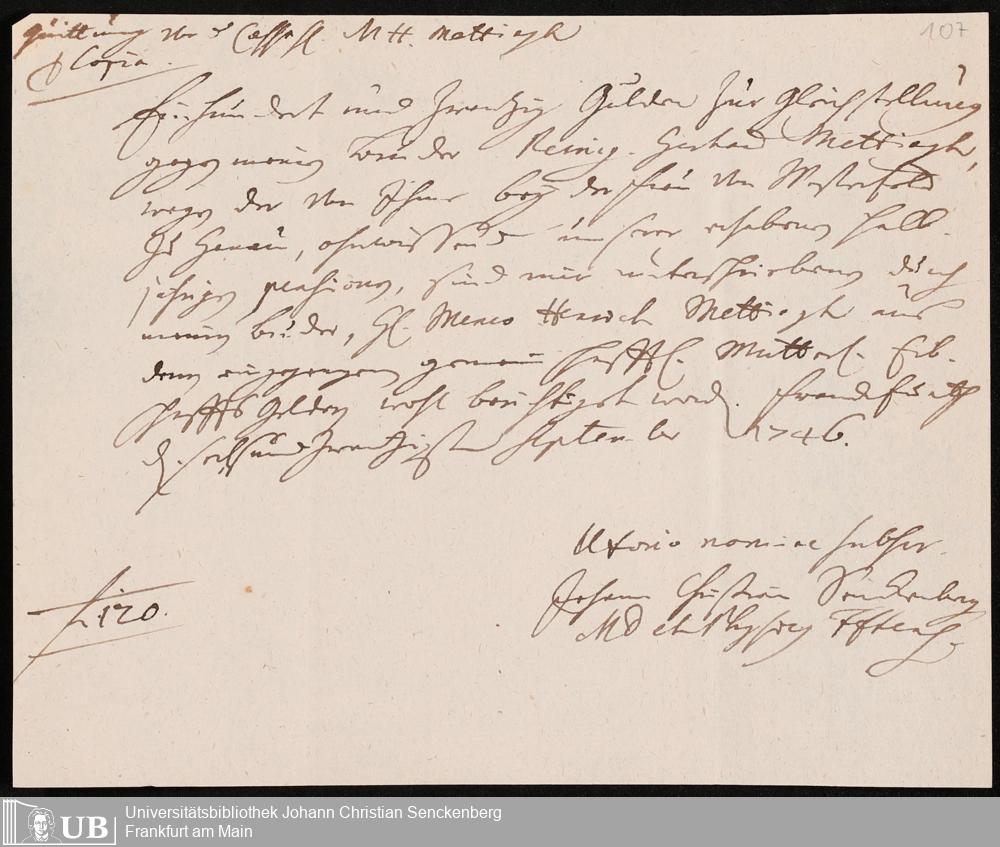 Quittung vor H. Mettingh
107
Copia.
Ein hundert und Zwantzig Gulden zur Gleichstellung
gegen meinen Bruder Reinig. Gerhard Mettingh,
wegen der von Ihme bey der Frau von Westerfeld
zu Hanau, unserer erhabenen halb-
jährigen pensionen, sind mir unterschriebenen durch
meinen Bruder, H. Menco Henrich Mettingh aus
denen eingegangenen gemein Mütterl. Erb-
schaffts Geldern wohl berichtiget word. Franckfurth
d. sechs und zwantzigsten September 1746.
Uxorio nomine subscr.
Johann Christian Senckenberg
MD et Physicus
f 120.
Universitätsbibliothek Johann Christian Senckenberg
Frankfurt am Main
UB